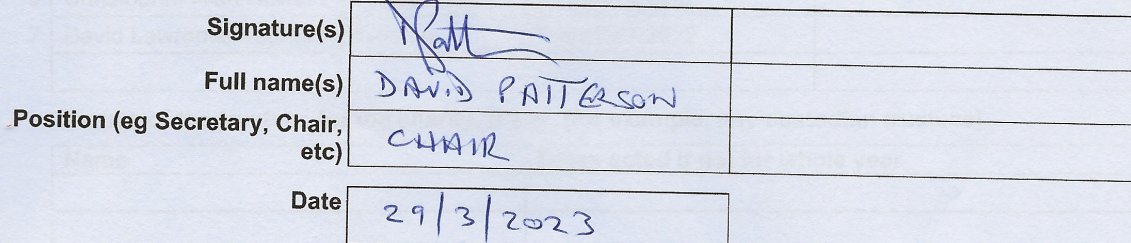 Signature(s)
Full name(s) DAVID PATTERSON
Position (eg Secretary, Chair,
etc) CHAIR
Date 29/3/2023